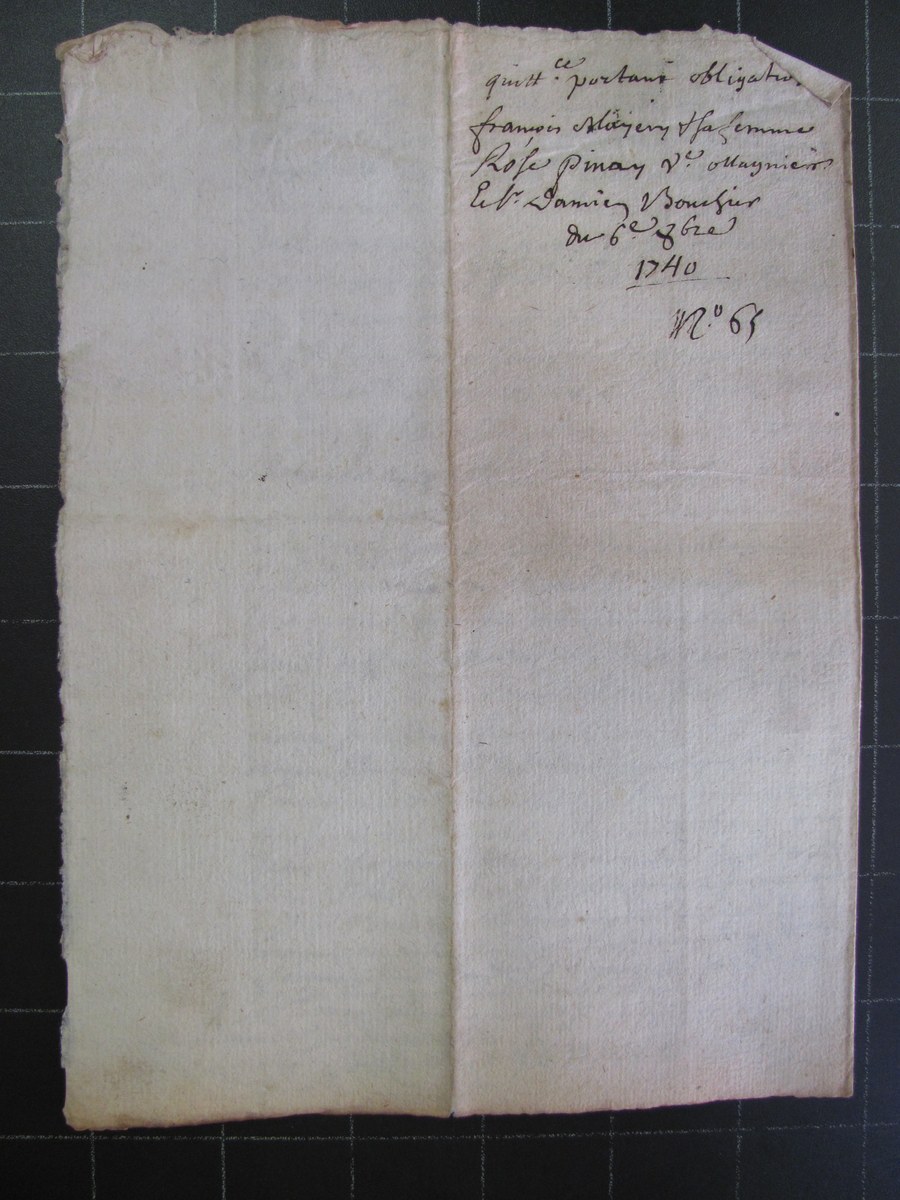 quitt.ce portant obligatio
françois & sa femme
Rose pinay v.e
Et Sr. Damien Bouchier
du 6.e 8bre
1740
N.o 65